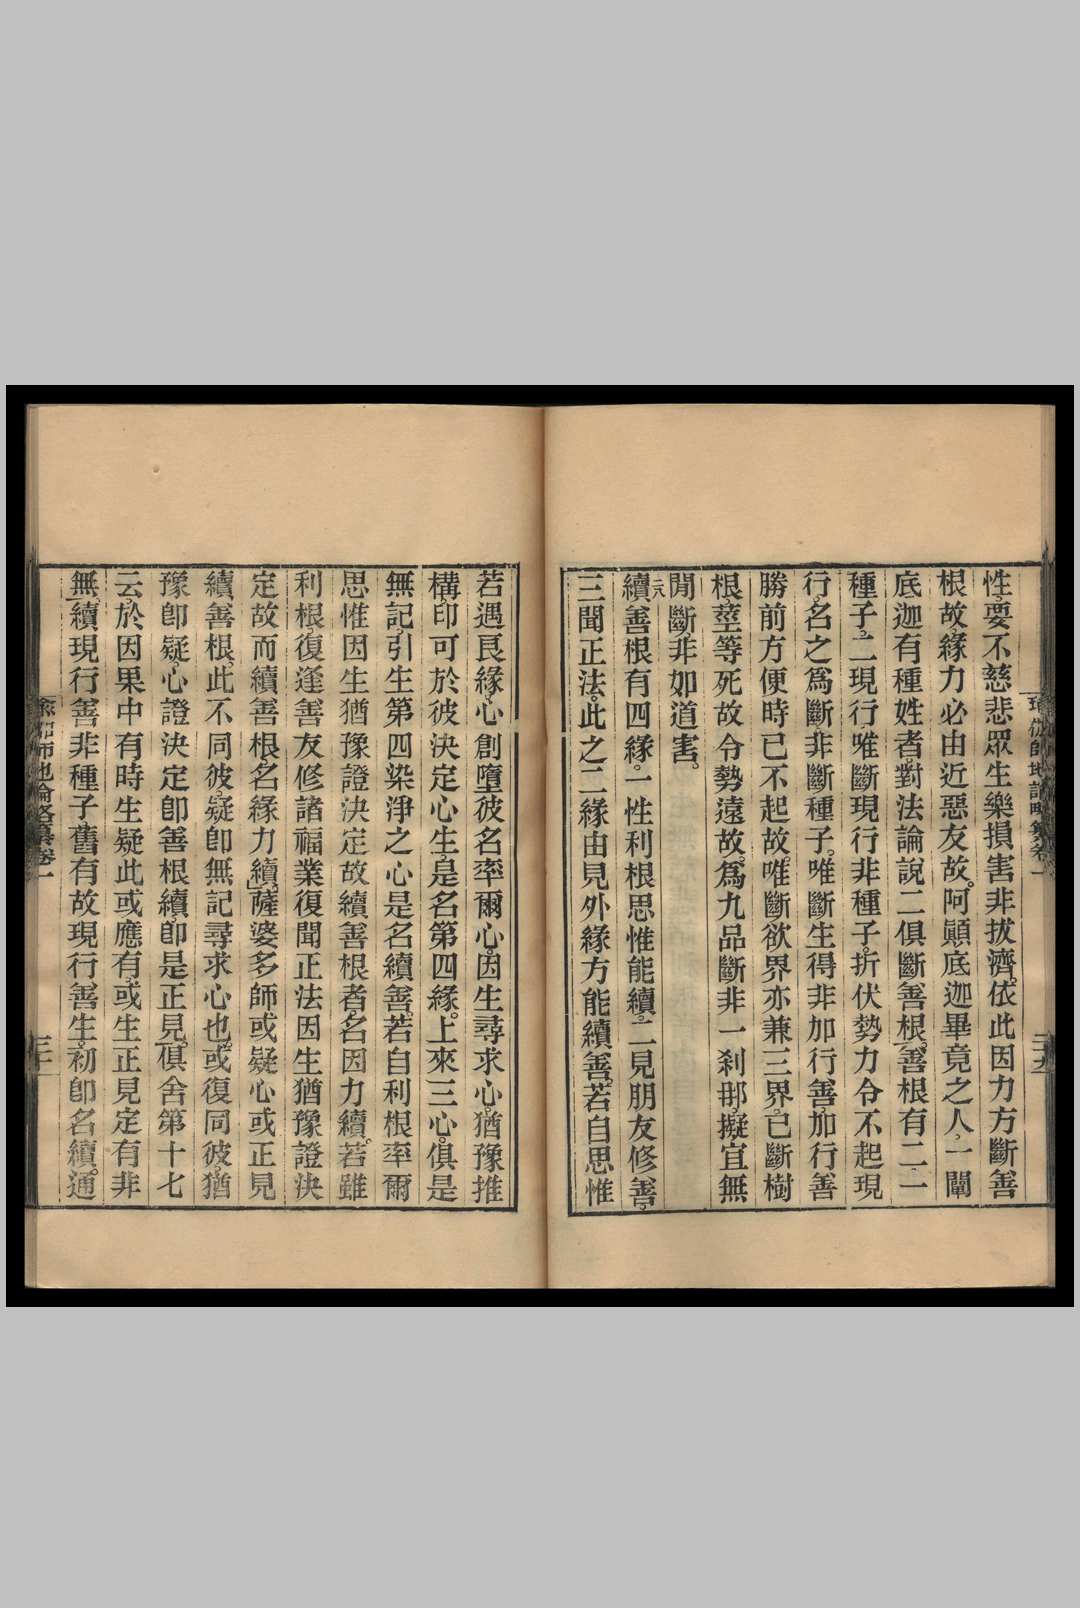 性要不慈悲眾生樂損害非拔濟依此因力方斷善
根故緣力必由近惡友故阿顚底迦畢竟之人一闡
底迦有種姓者對法論說二俱斷善根善根有二一
種子二現行唯斷現行非種子折伏勢力令不起現
行名之爲斷非斷種子唯斷生得非加行善加行善
勝前方便時已不起故唯斷欲界亦兼三界已斷樹
根莖等死故令勢遠故爲九品斷非一剎那擬宜無
閒斷非如道害
續善根有四緣一性利根思惟能續二見朋友修善
三聞正法此之二緣由見外緣方能續善若自思惟
若遇良緣心創墮彼名率爾心因生尋求心猶豫推
構印可於彼決定心生是名第四緣上來三心俱是
無記引生第四染淨之心是名續善若自利根率爾
思惟因生猶豫證決定故續善根者名因力續若雖
利根復逢善友修諸福業復聞正法因生猶豫證決
定故而續善根名緣力續薩婆多師或疑心或正見
續善根此不同彼疑卽無記尋求心也或復同彼猶
豫卽疑心證決定卽善根續卽是正見俱舍第十七
云於因果中有時生疑此或應有或生正見定有非
無續現行善非種子舊有故現行善生初卽名續通